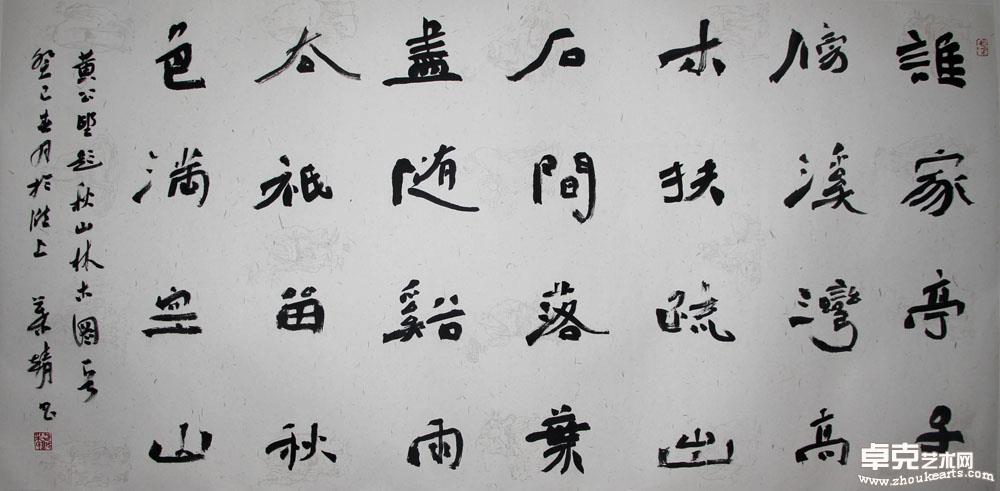 誰家亭子
傍溪灣高
木扶疏出
石間落葉
盡随谿雨
去祇留秋
色滿空山
黄公望題秋山林木圖
癸巳春月於滬上 书
卓克艺术网
www.zhoukearts.com